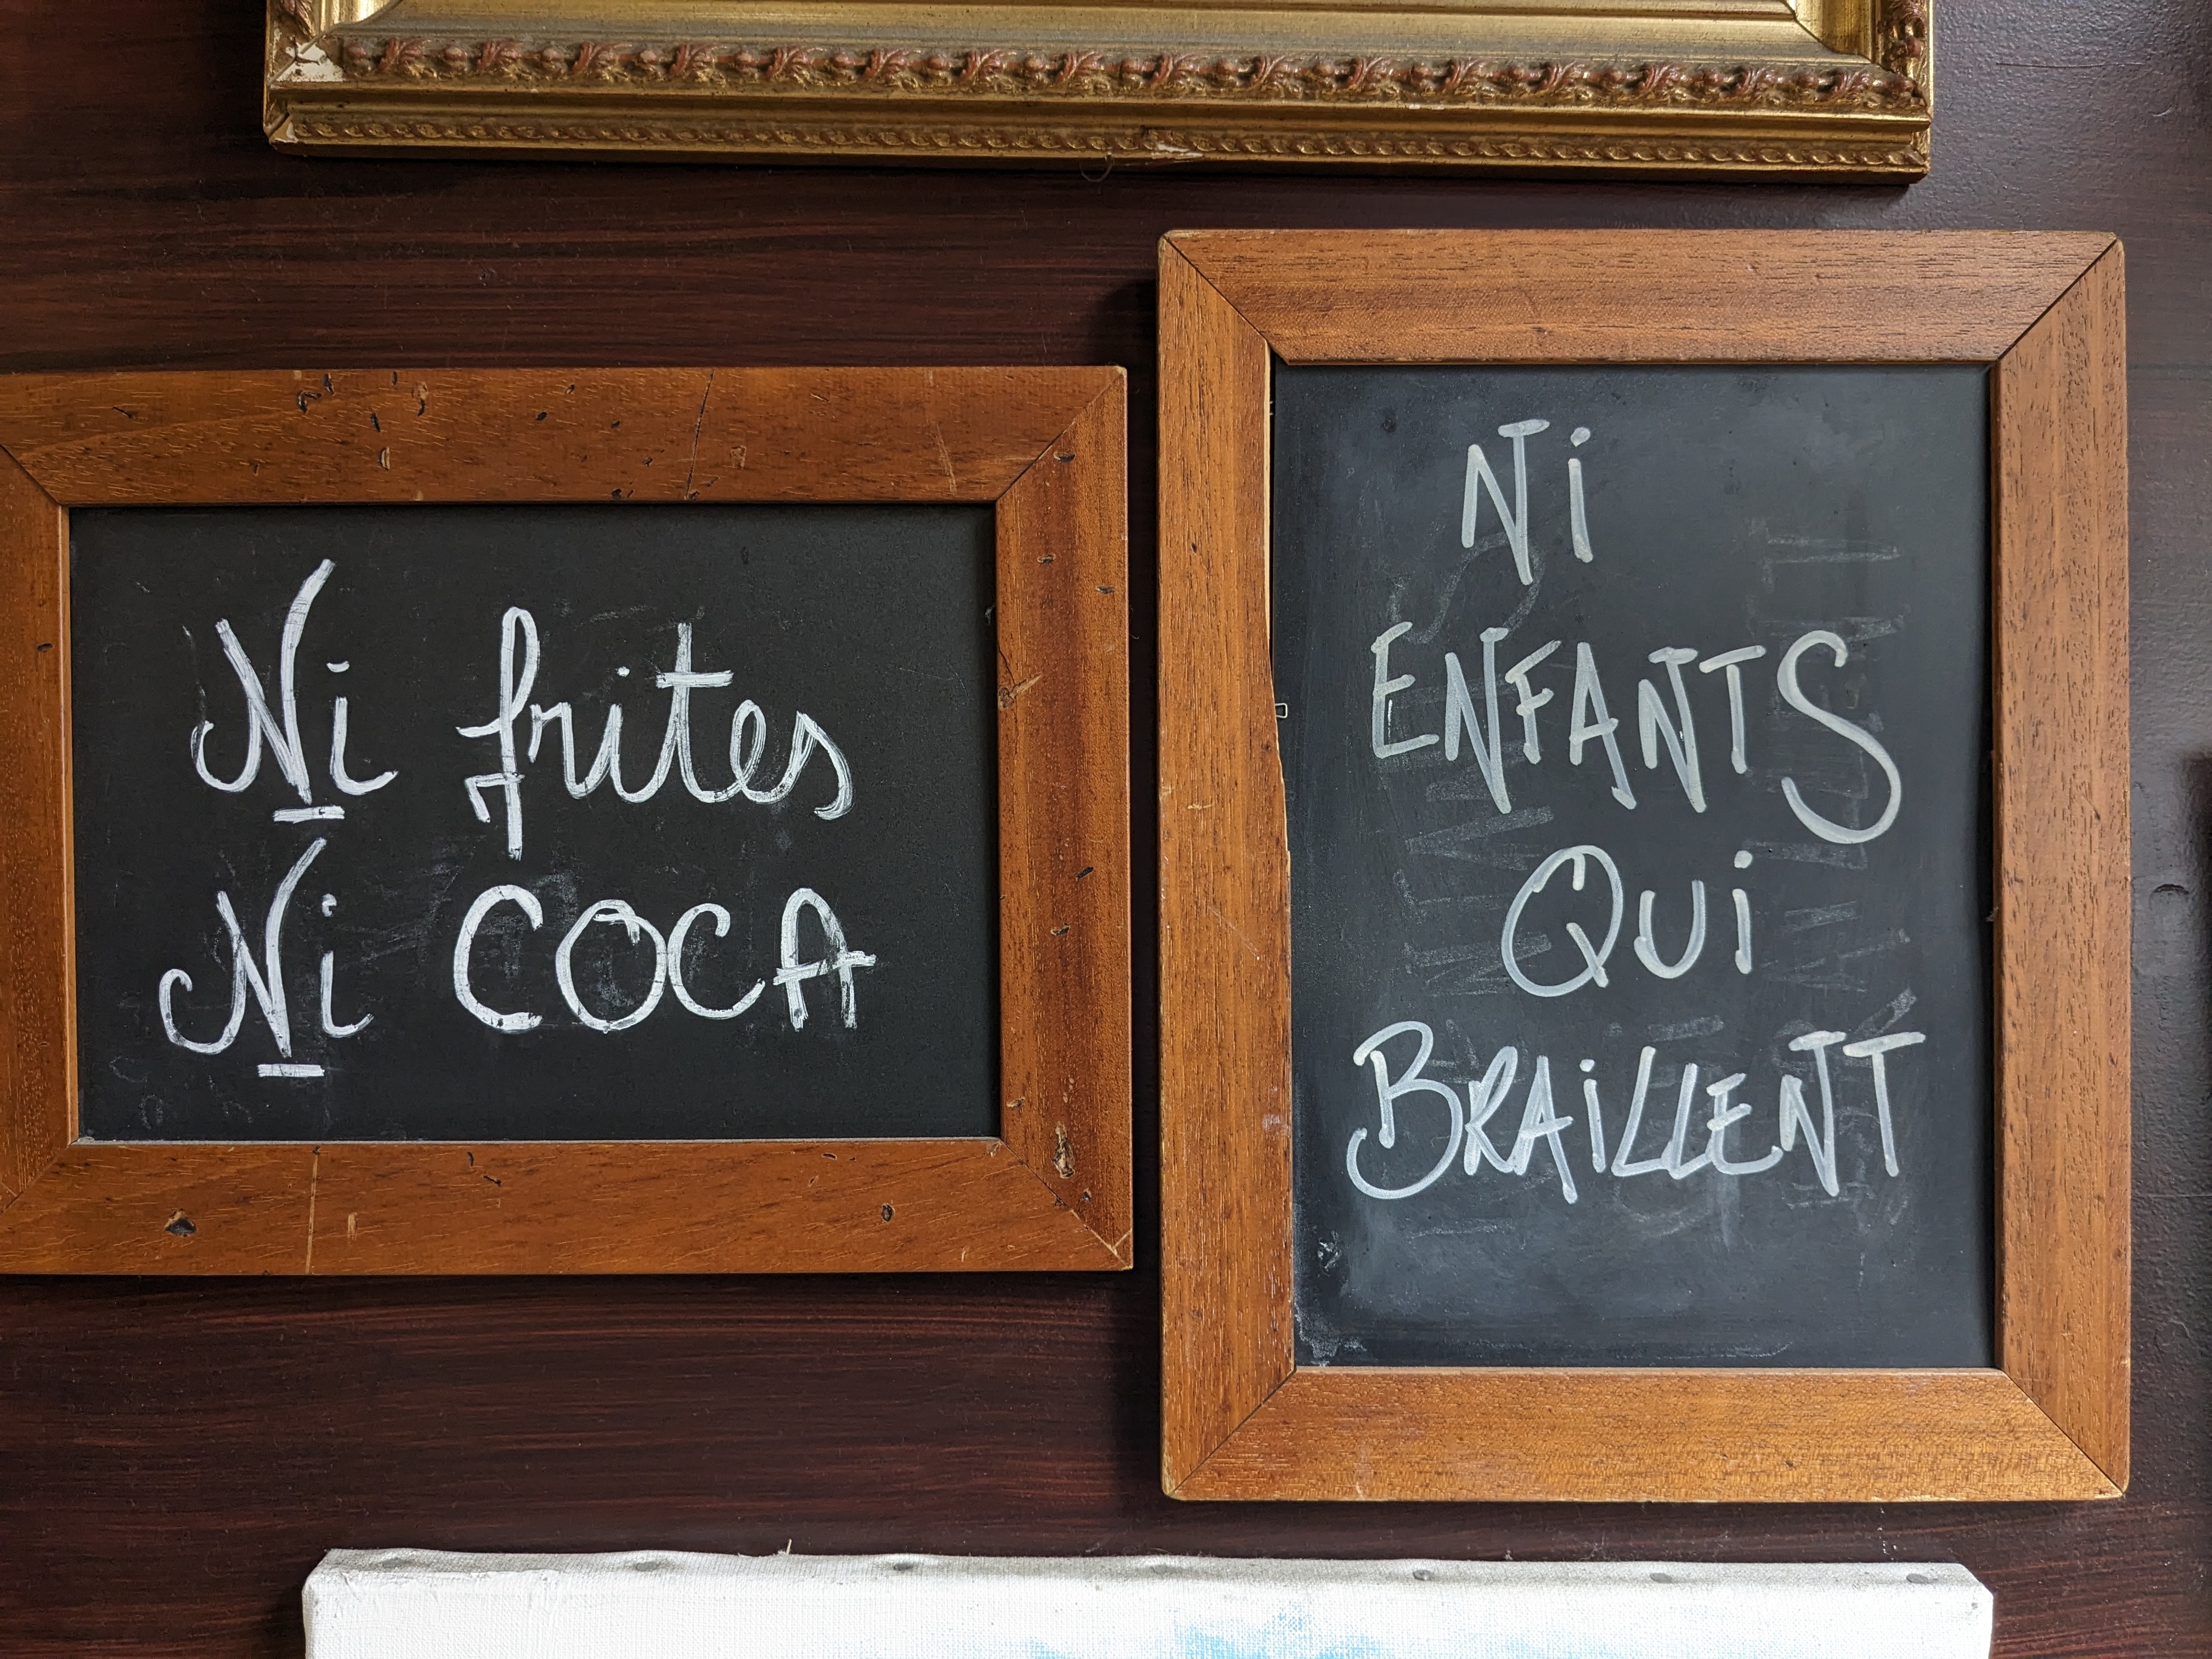 Ni frites
Ni COCA
Ni
ENFANTS
QUi
BRAiLLENT